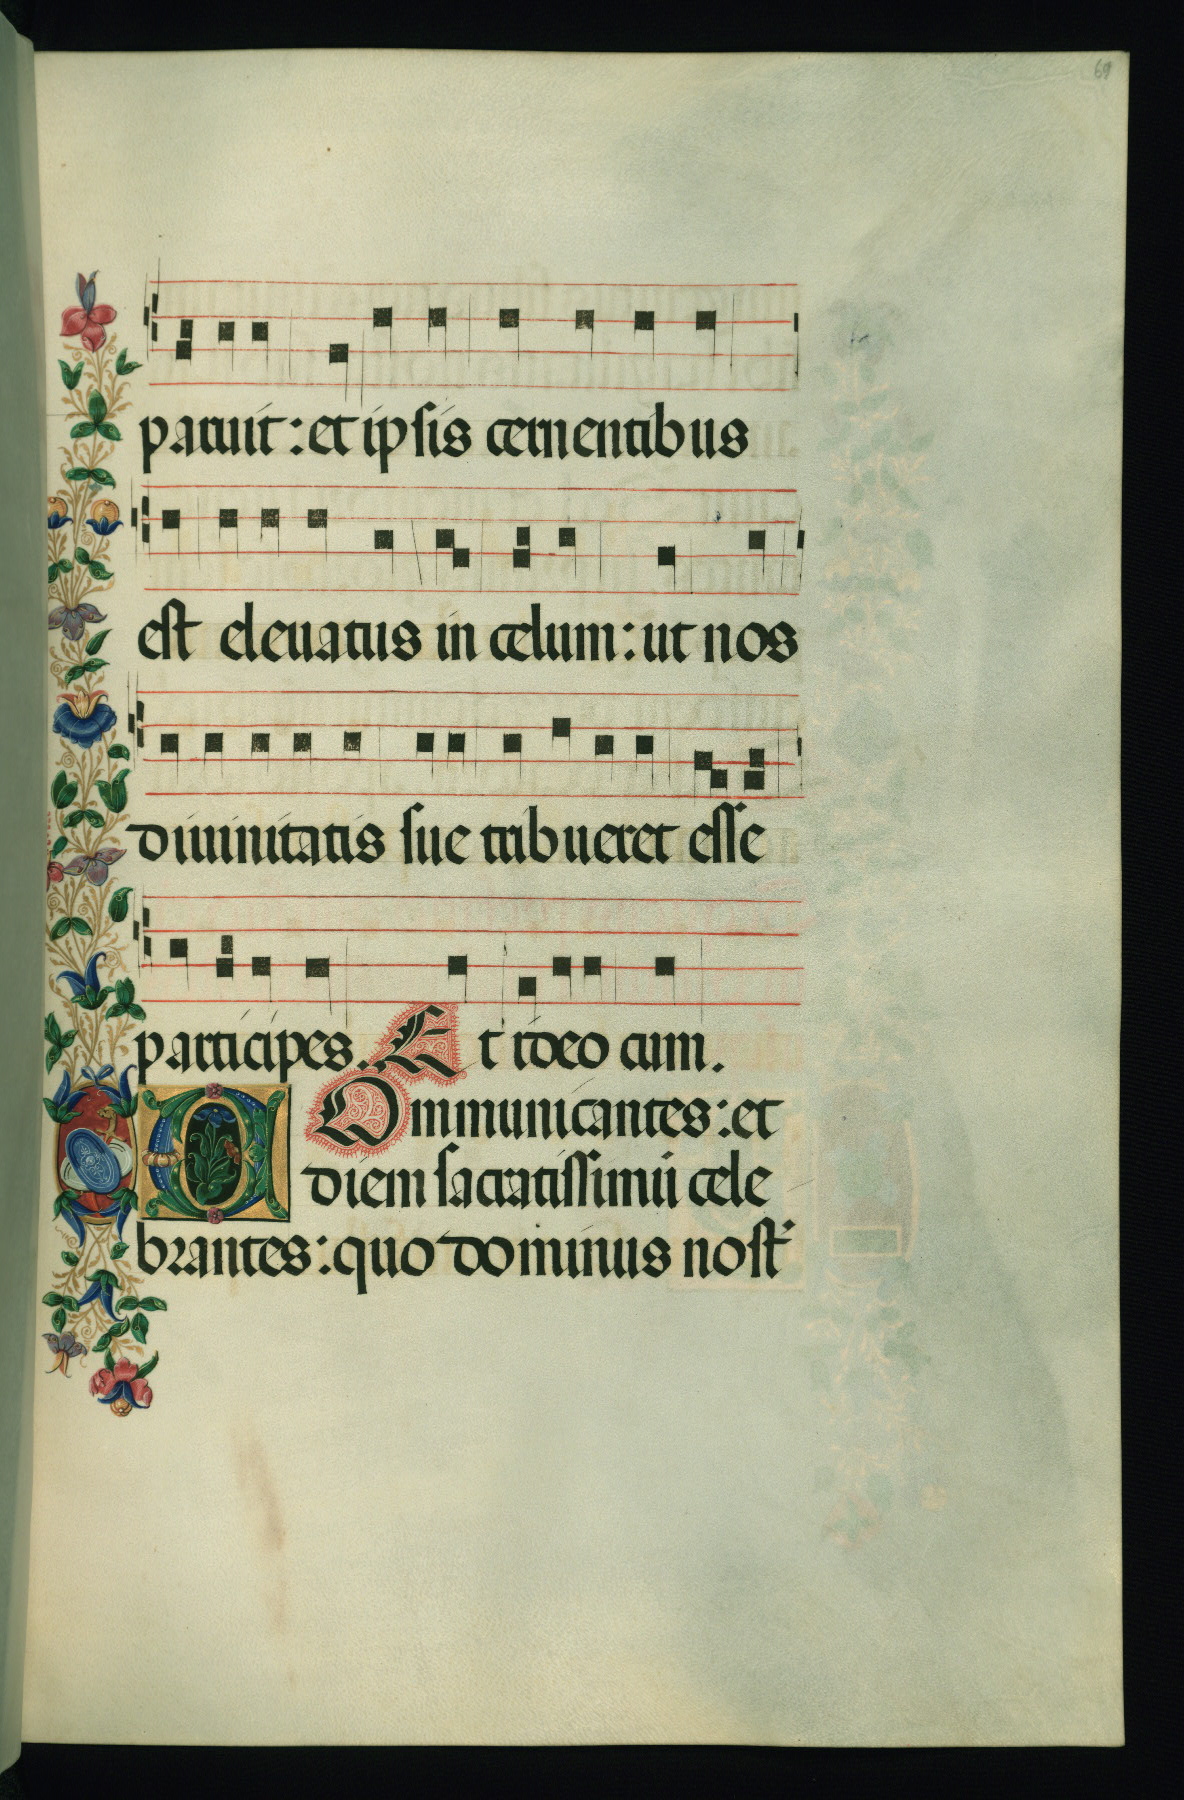 69
patuit: et ipsis cernentibus
est eleuatus in celum: ut nos
diuinitatis sue tribueret esse
participes. Et ideo cum.
Communicantes: et
diem sacratissimũ cele
brantes: quo dominus nost͛